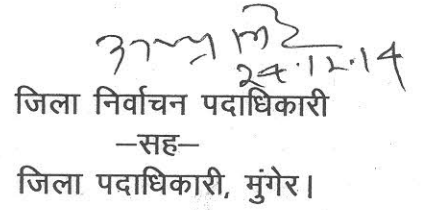 24.12.14
जिला निर्वाचन पदाधिकारी
–सह–
जिला पदाधिकारी, मुंगेर।